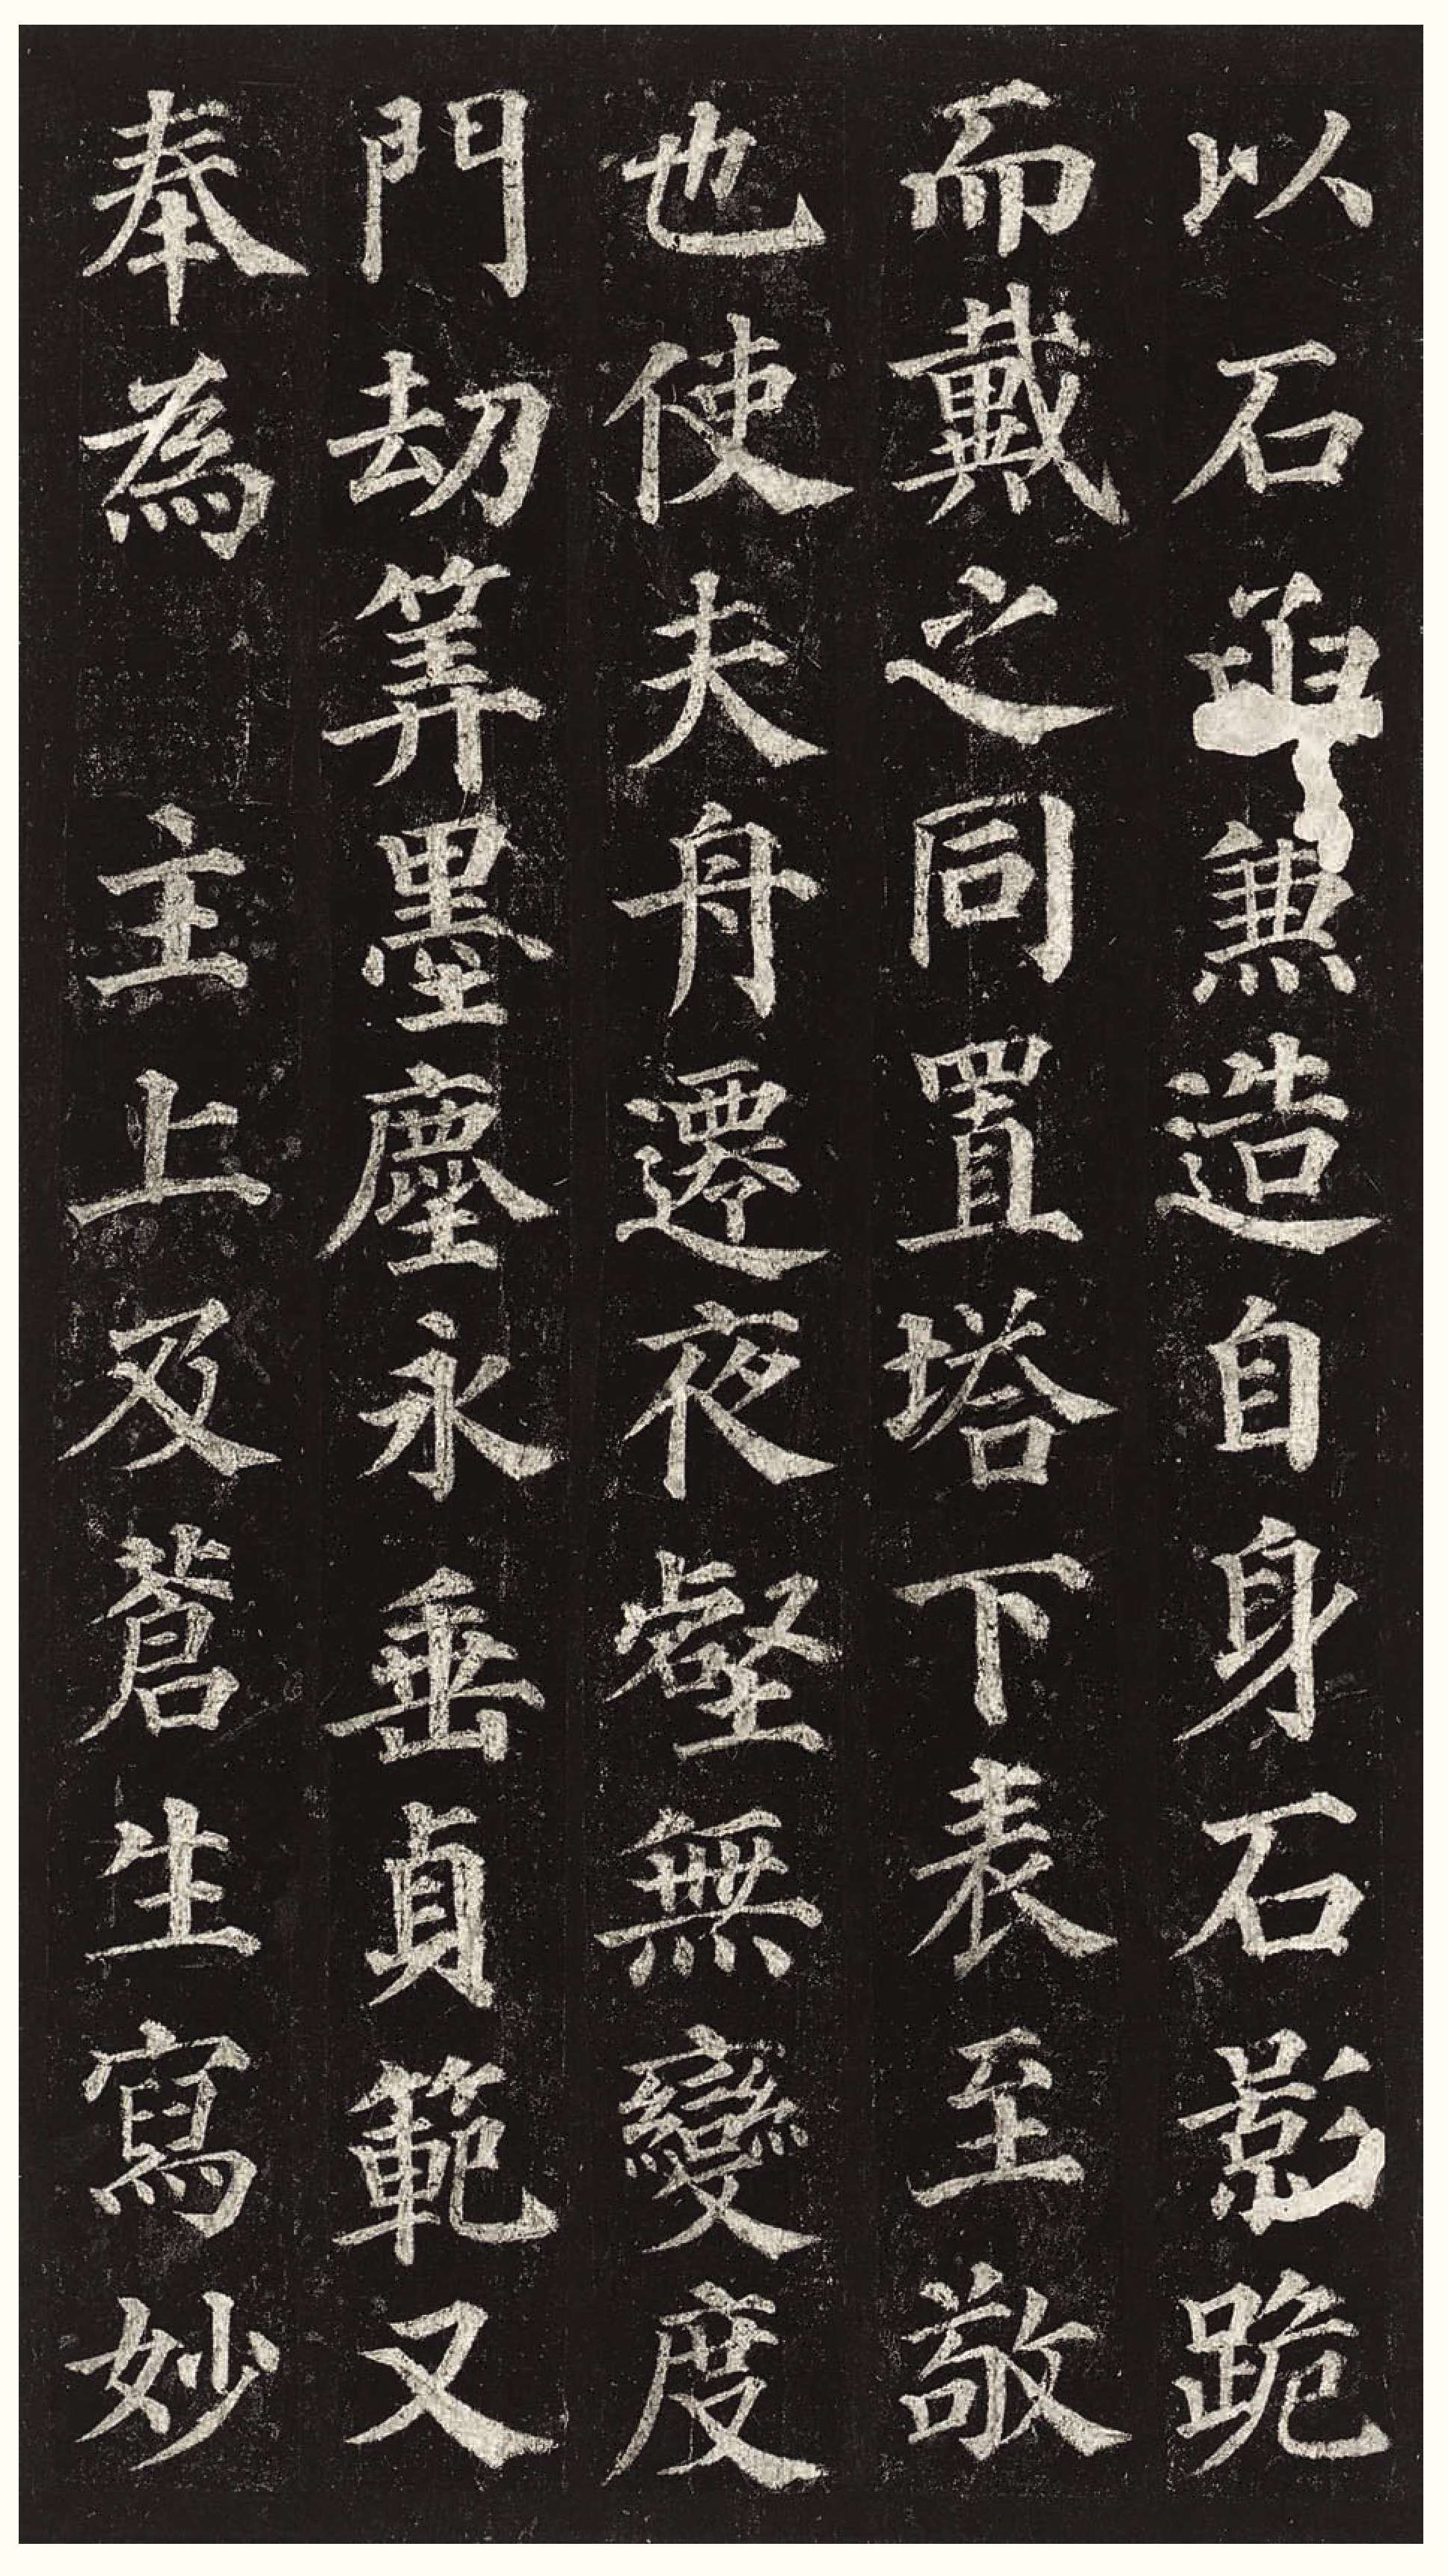 以石函兼造自身石影跪
而戴之同置塔下表至敬
也使夫舟遷夜壑無變度
門劫筭墨塵永垂貞範又
奉為主上及蒼生寫妙